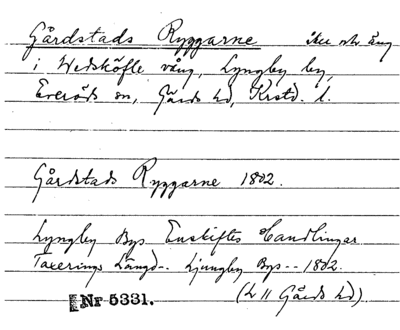 Gårdstads Ryggarne åker och äng
i Wedsköfle vång, Lyngby by,
Everöds sn, Gärds hd, Krstd. l.
Gårdstads Ryggarne 1802.
Lyngby Bys Enskiftes Handlingar
Taxerings Längd-. Ljungby Bys-- 1802.
(L 11 Gärds hd).
Nr 5331.